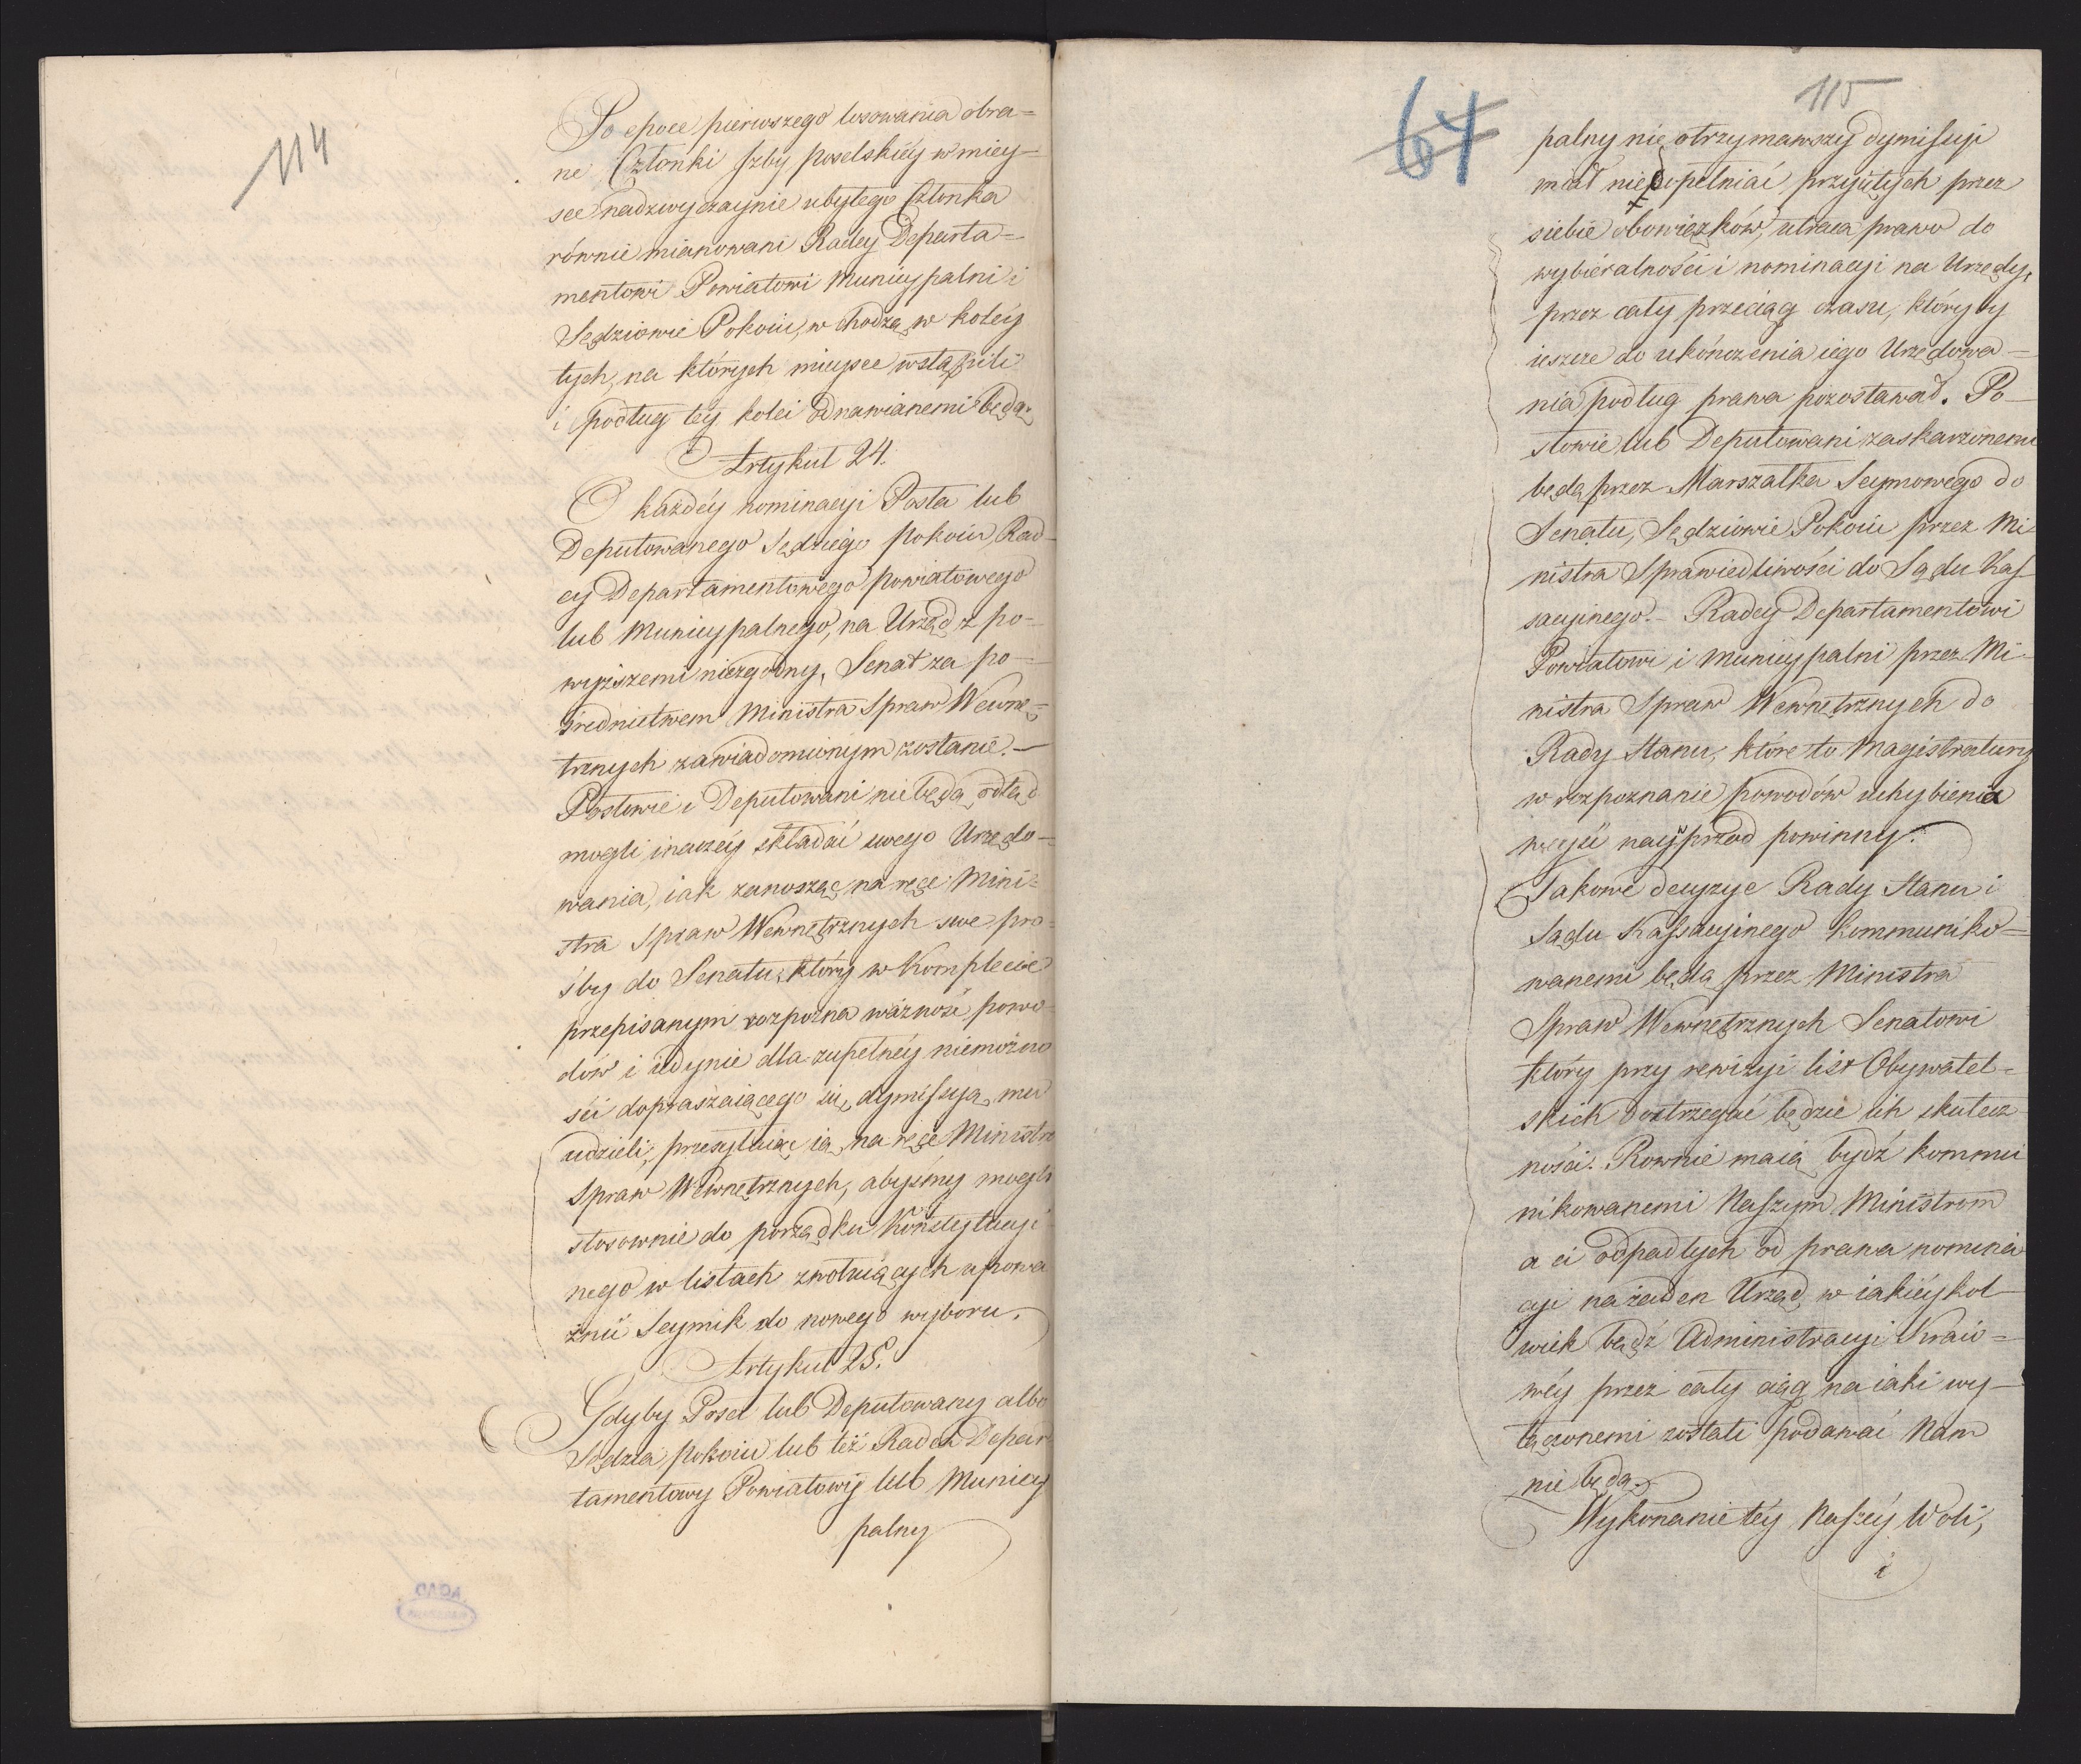 114
Po epoce pierwszego losowania obra=
ne Członki Jzby poselskiéy w miey-
sce nadzwyczaynie ubyłego Członka
równie mianowani Radcy Departa=
mentowi Powiatowi Municypalni i
Sędziowie Pokoiu, wchodzą w koléy
tych, na których mieysce wstąpili
i podług téy kolei odnawianemi będą.
Artykuł 24.
O każdéy nominacyi Posła lub
Deputowanego Sędziego pokoiu, Rad-
cy Departamentowego powiatowego
lub Municypalnego, na Urząd z po-
wyższemi niezgodny, Senat za po-
średnictwem Ministra Spraw Wewnę=
trznych zawiadomionym zostanie. —
Posłowie i Deputowani nie będą odtąd
mogli inaczéy składać swego Urzędo-
wania, iak zanosząc na ręce Mini=
stra Spraw Wewnętrznych swe pro=
śby do Senatu, który w Komplecie
przepisanym rozpozna ważność powo-
dów i iedynie dla zupełnéy niemożno
ści dopraszaiącego się, dymissyą mu
udzieli, przesyłaiąc ią na ręce Ministra
Spraw Wewnętrznych, abyśmy mogli
stosownie do porządku Konstytucyi-
nego w listach zwołuiących upowa
żnić Seymik do nowego wyboru.
Artykuł 25.
Gdyby Poseł lub Deputowany albo
Sędzia pokoiu lub też Radca Depar
tamentowy Powiatowy lub Municy
palny
64
115
palny nie otrzymawszy dymissyi
miał nie dopełniać przyiętych przez
siebie obowiązków, utraca prawo do
wybieralności i nominacyi na Urzędy,
przez cały przeciąg czasu, któryby
ieszcze do ukończenia iego Urzędowa-
nia podług prawa pozostawał. Po-
słowie lub Deputowani zaskarżonemi
będą przez Marszałka Seymowego do
Senatu, Sędziowie Pokoiu przez Mi
nistra Sprawiedliwości do Sądu Kas-
sacyinego. - Radcy Departamentowi
Powiatowi i Municypalni przez Mi-
nistra Spraw Wewnętrznych do
Rady Stanu, które to Magistratury
w rozpoznanie powodów uchybienia
weyść nayprzód powinny.
Takowe decyzye Rady Stanu i
Sądu Kassacyinego kommuniko=
wanemi będą przez Ministra
Spraw Wewnętrznych Senatowi
który przy rewizyi list Obywatel=
skich dostrzegać będzie ich skutecz
ności. Rownie maią bydź kommu
nikowanemi Naszym Ministrom
a ci odpadłych od prawa nomina
cyi na żaden Urząd, w iakiéykol-
wiek bądź Administracyi Kraio=
wéy przez cały ciąg na iaki wy-
łączonemi zostali podawać Nam
nie będą.
Wykonanie téy Naszéy Woli,
i